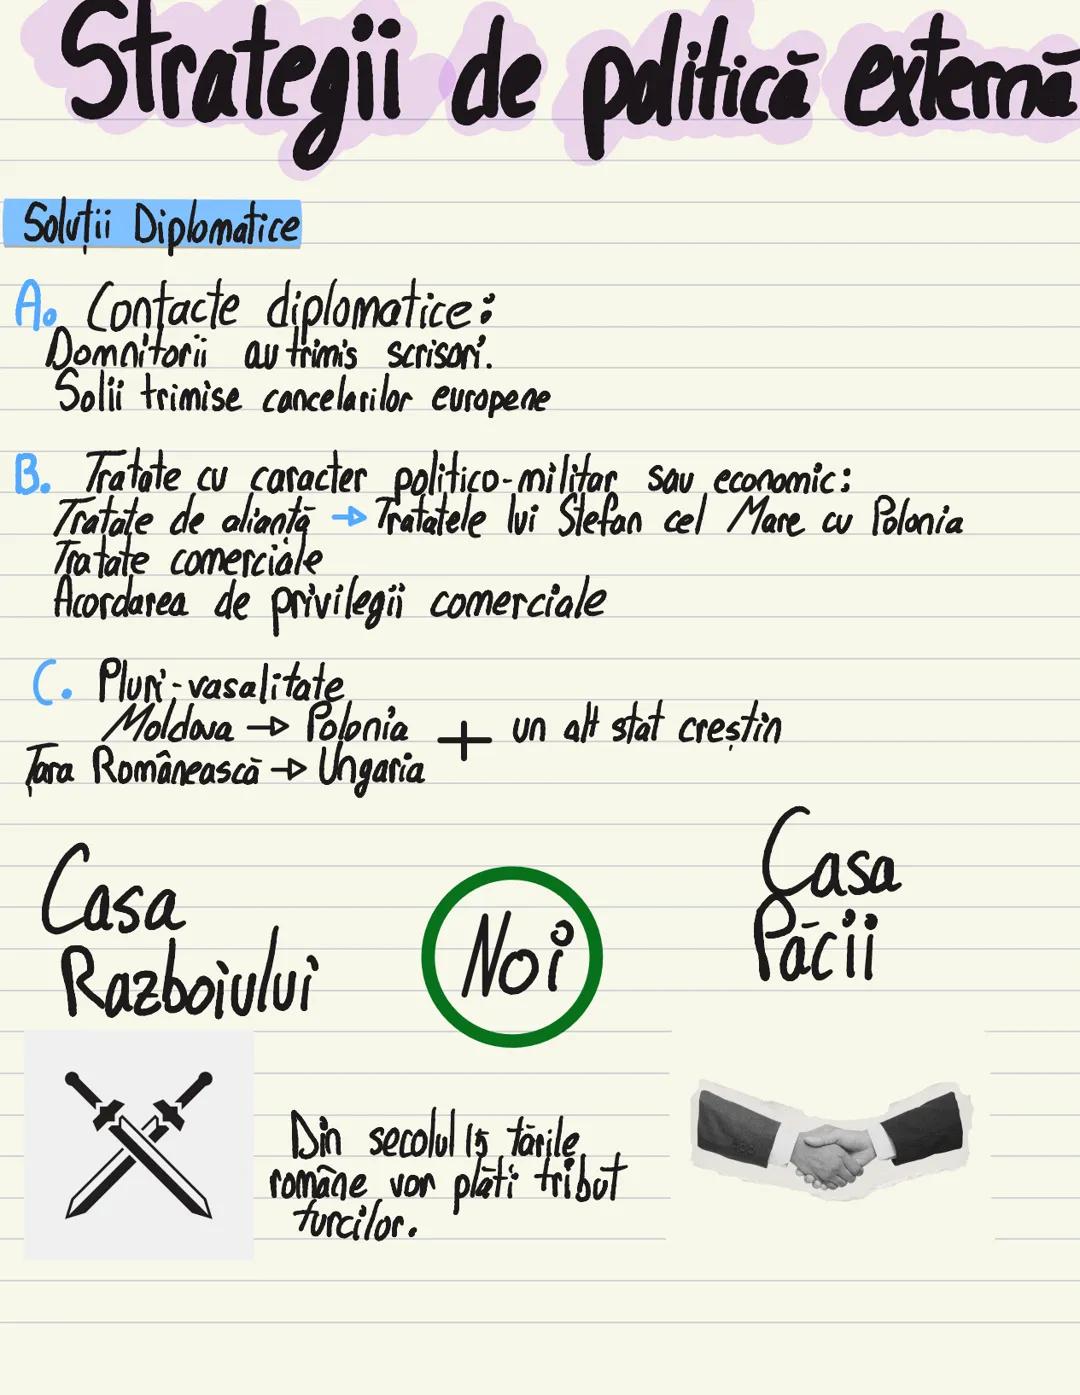 Strategii de politică externă
Soluții Diplomatice
A. Contacte diplomatice:
Domnitorii au trimis scrisori.
Solii trimise cancelarilor europene
B. Tratate cu caracter politico-militar sau economic:
Tratate de aliantă → Tratatele lui Ștefan cel Mare cu Polonia
Tratate comerciale
Acordarea de privilegii comerciale
C. Pluri-vasalitate
Moldova → Polonia + un alt stat creștin
Țara Românească → Ungaria
Casa
Razboiului
Noi
Casa
Păcii
Din secolul 15 țările
române vor plăti tribut
turcilor.